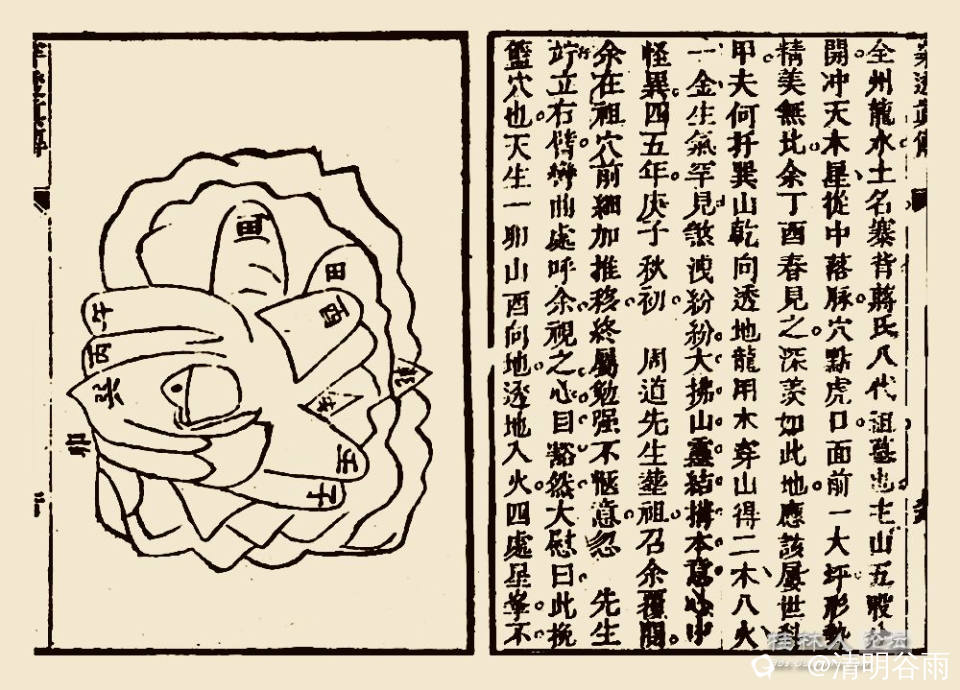 全州龍水土名寨背蔣氏八代祖墓也主山五股
開冲天木星從中落脉穴點虎口面前一大坪形勢
精美無比余丁酉春見之深羡如此地應該屡世科
甲夫何扦巽山乾向透地龍用木穿山得二木八火
一金生氣罕見煞洩紛紛大拂山靈結搆本意心中
怪異四五年庚子秋初 周道先生塟祖召余覆閱
余在祖穴前細加推移終屬勉强不愜意忽 先生
竚立右偕彎曲處呼余視之心目豁然大慰曰此挽
籃穴也天生一卯山酉向地透地入火四處星峯不
田
田
酉
午
丙
巽
卯
壬
子
桂林人论坛
@清明谷雨